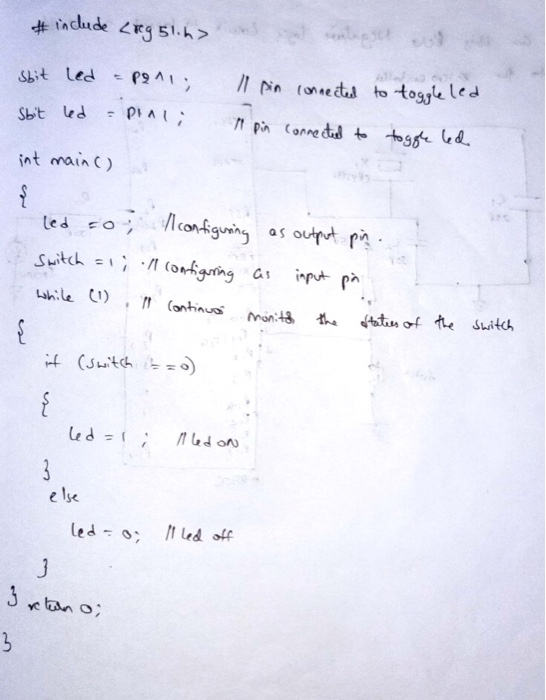 # include <reg51.h>
Sbit Led = P2^1; // pin connected to toggle led
Sbit led = P1^1; // pin connected to toggle led
int main()
{
led =0; // configuring as output pin.
Switch =1; // configuring as input pin
while (1) // Continuos monitor the status of the switch
{
if (switch ==0)
{
led = 1; // led ON
}
else
led = 0; // led off
}
} return 0;
}